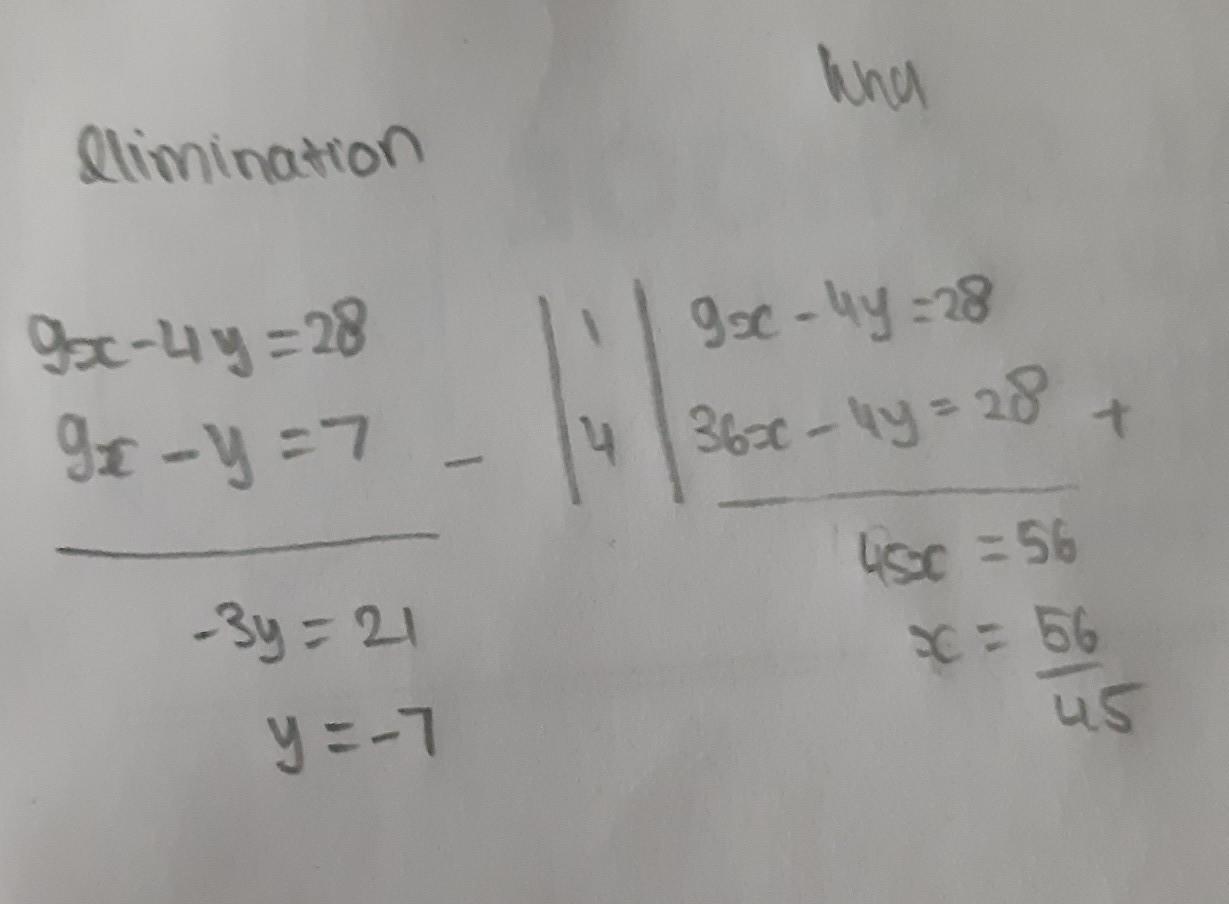 Elimination
9x-4y=28
9x-y=7 -
-3y=21
y=-7
| 1 |
| 4 |
9x-4y=28
36x-4y=28 +
45x=56
x=56/45